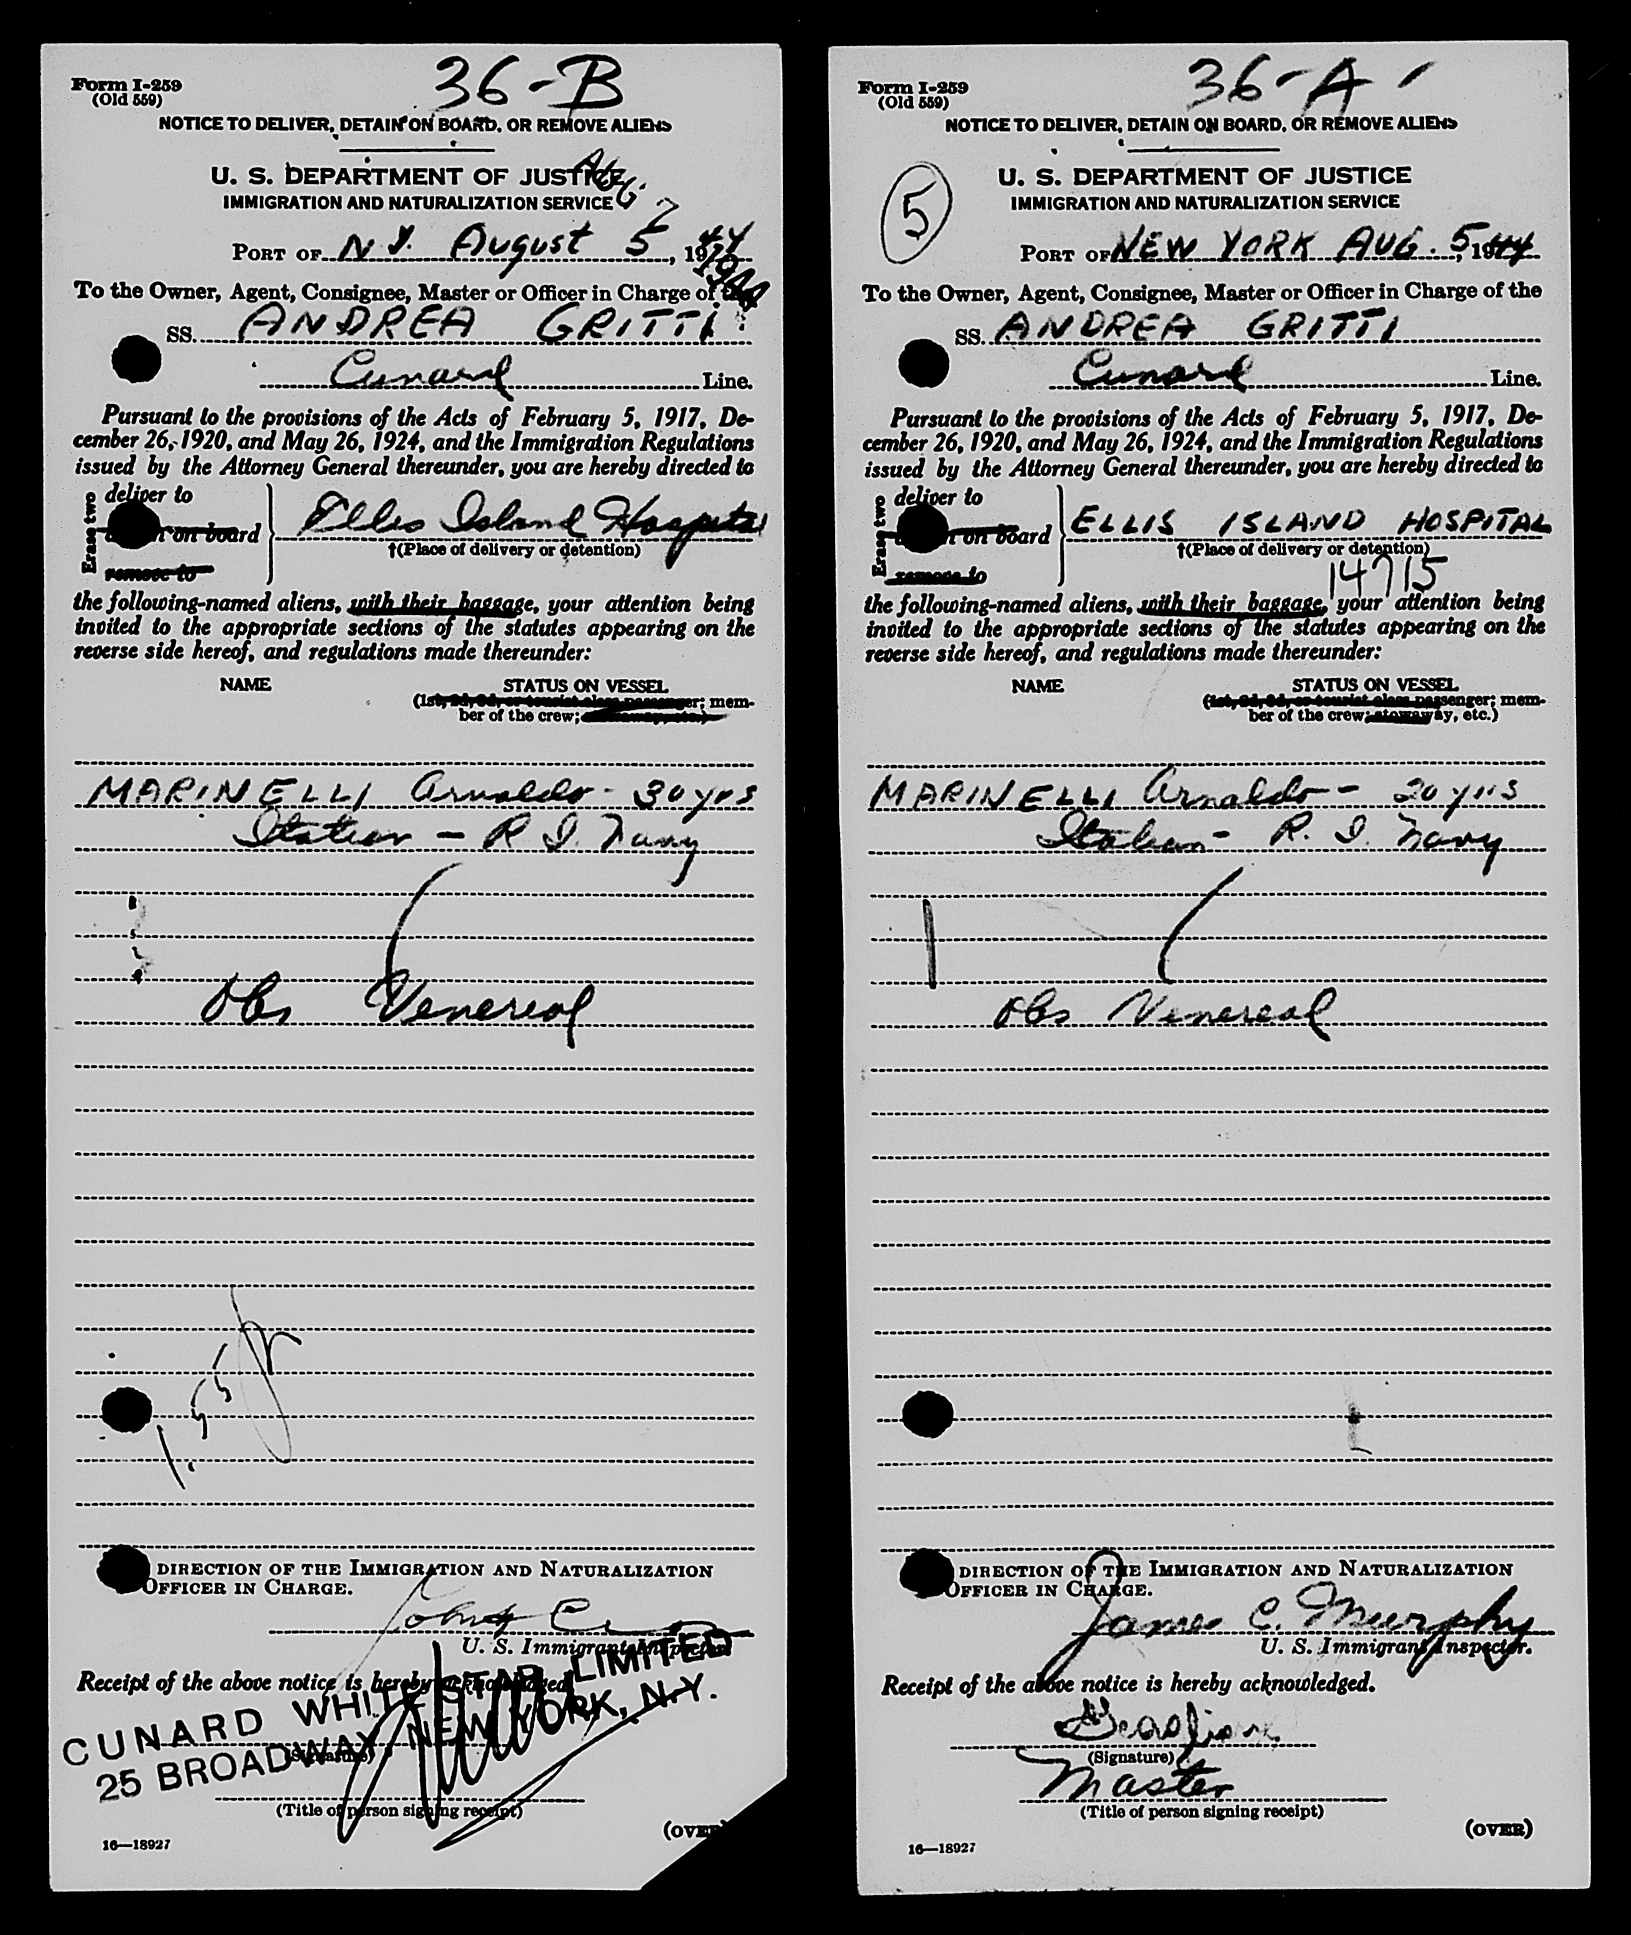 36-B
Form I-259
(Old 559)
NOTICE TO DELIVER, DETAIN ON BOARD, OR REMOVE ALIENS
U. S. DEPARTMENT OF JUSTICE
IMMIGRATION AND NATURALIZATION SERVICE
AUG. 7 1944
PORT OF N.Y. August 5, 1944
To the Owner, Agent, Consignee, Master or Officer in Charge of the
SS. ANDREA GRITTI
Cunard Line.
Pursuant to the provisions of the Acts of February 5, 1917, De-
cember 26, 1920, and May 26, 1924, and the Immigration Regulations
issued by the Attorney General thereunder, you are hereby directed to
Erase two
deliver to
on board
remove to
Ellis Island Hospital
†(Place of delivery or detention)
the following-named aliens, with their baggage, your attention being
invited to the appropriate sections of the statutes appearing on the
reverse side hereof, and regulations made thereunder:
NAME STATUS ON VESSEL
(1st, 2d, 3d, or tourist class passenger; mem-
ber of the crew;
MARINELLI Arnaldo - 30 yrs
Italian - R I. Navy
Obs Venereal
1.55
DIRECTION OF THE IMMIGRATION AND NATURALIZATION
OFFICER IN CHARGE.
U. S. Immigrant Inspector.
Receipt of the above notice is hereby acknowledged.
CUNARD WHITE STAR LIMITED
25 BROADWAY, NEW YORK, N.Y.
(Signature)
(Title of person signing receipt)
16—18927
(OVER)
36-A
Form I-259
(Old 559)
NOTICE TO DELIVER, DETAIN ON BOARD, OR REMOVE ALIENS
5
U. S. DEPARTMENT OF JUSTICE
IMMIGRATION AND NATURALIZATION SERVICE
PORT OF NEW YORK AUG. 5, 1944
To the Owner, Agent, Consignee, Master or Officer in Charge of the
SS. ANDREA GRITTI
Cunard Line.
Pursuant to the provisions of the Acts of February 5, 1917, De-
cember 26, 1920, and May 26, 1924, and the Immigration Regulations
issued by the Attorney General thereunder, you are hereby directed to
Erase two
deliver to
on board
remove to
ELLIS ISLAND HOSPITAL
†(Place of delivery or detention)
14715
the following-named aliens, with their baggage, your attention being
invited to the appropriate sections of the statutes appearing on the
reverse side hereof, and regulations made thereunder:
NAME STATUS ON VESSEL
(1st, 2d, 3d, or tourist class passenger; mem-
ber of the crew; stowaway, etc.)
MARINELLI Arnaldo - 30 yrs
Italian - R. I. Navy
Obs Venereal
DIRECTION OF THE IMMIGRATION AND NATURALIZATION
OFFICER IN CHARGE.
James C. Murphy
U. S. Immigrant Inspector.
Receipt of the above notice is hereby acknowledged.
(Signature)
Master
(Title of person signing receipt)
16—18927
(OVER)